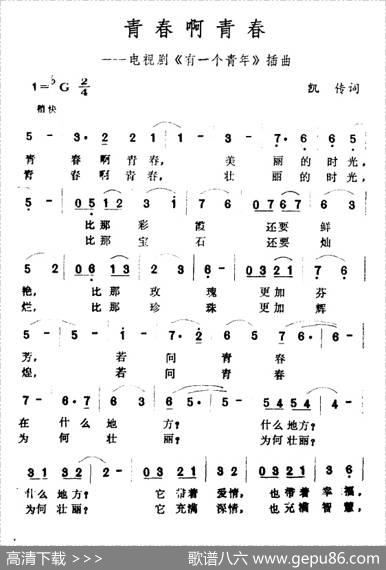 青春啊青春
——电视剧《有一个青年》插曲
1=♭G 2/4
凯传词
稍快
5 - 3· 2 21 2 - 3 - 7· 6 6 5
青春啊青春，美丽的时光，
青春啊青春，壮丽的时光，
5 - 0512 3 1 7 6 0323 4 3
比那彩霞还要鲜
比那宝石还要灿
5 2 0613 5 2 - 0321 7 6
艳，比那玫瑰更加芬
烂，比那珍珠更加辉
5 - 5 - 1 - 7· 2 6 5
芳，若问青春
煌，若问青春
7 - 6 · 7 6 3 6 5 - 5454 5 -
在什么地方？什么地方？
为何壮丽？为何壮丽？
31 32 2 - 0213 3 2 - 0123 1 6
什么地方？它带着爱情，也带着幸福，
为何壮丽？它充满深情，也充满智慧，
高清下载 >>>
歌谱八六 www.gepu86.com